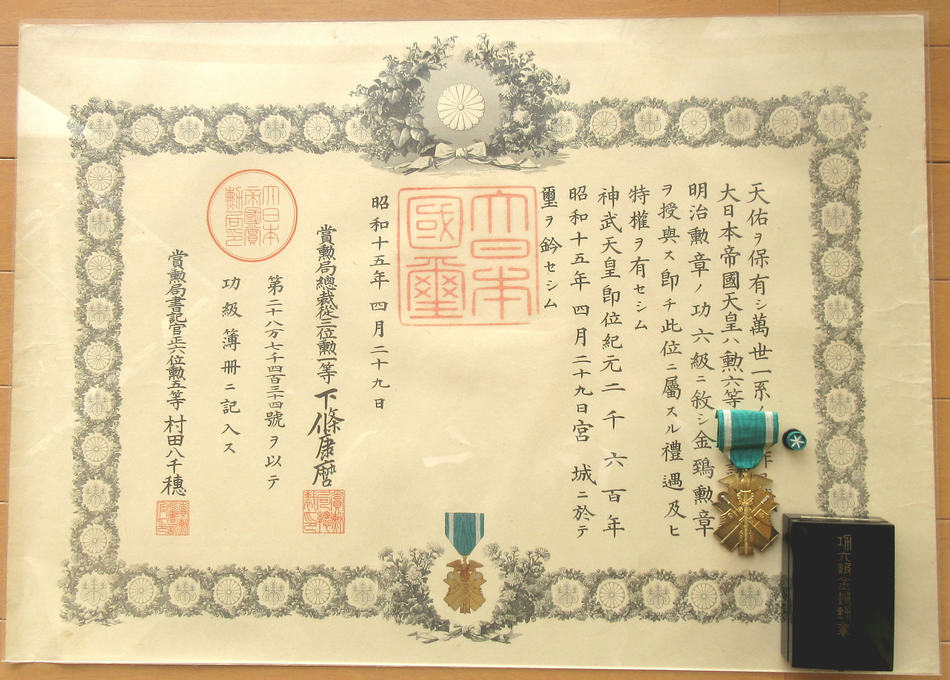 天佑ヲ保有シ萬世一系ノ
大日本帝國天皇ハ勲六等
明治勲章ノ功六級ニ敘シ金鵄勲章
ヲ授與ス即チ此位ニ屬スル禮遇及ヒ
特權ヲ有セシム
神武天皇即位紀元二千六百年
昭和十五年四月二十九日宮城ニ於テ
璽ヲ鈐セシム
大日本
國璽
昭和十五年四月二十九日
賞勲局總裁從三位勲一等下條康麿
第二十八万七千四百三十四號ヲ以テ
功級簿册ニ記入ス
大日本
帝國賞
勲局印
賞勲局書記官正六位勲五等村田八千穂
功六級金鵄勲章